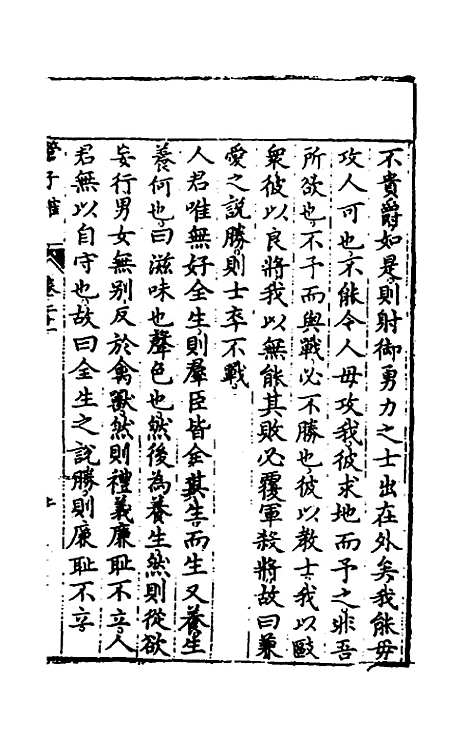 不貴爵如是則射御勇力之士出在外矣我能毋
攻人可也不能令人毋攻我彼求地而予之非吾
所欲也不予而與戰必不勝也彼以教士我以敺
衆彼以良將我以無能其敗必覆軍殺將故曰兼
愛之說勝則士卒不戰
人君唯無好全生則羣臣皆全其生而生又養生
養何也曰滋味也聲色也然後為養生然則從欲
妄行男女無别反於禽獸然則禮義廉耻不立人
君無以自守也故曰全生之說勝則廉耻不立
管子榷